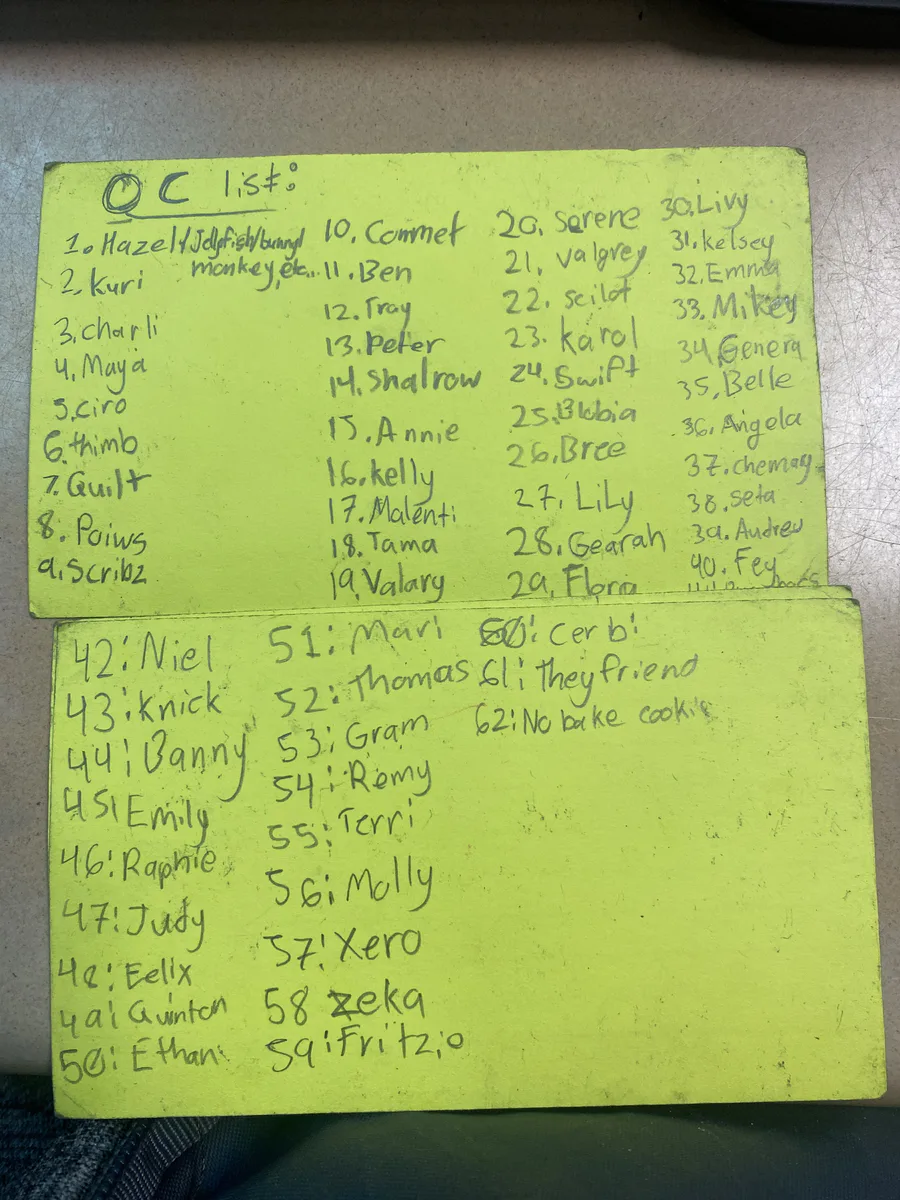 OC list:
1. Hazel/Jellyfish/bunny/
monkey, etc..
2. Kuri
3. charli
4. Maya
5. ciro
6. thimb
7. Quilt
8. Poiws
9. Scribz
10. Commet
11. Ben
12. Tray
13. Peter
14. Shalrow
15. Annie
16. kelly
17. Malenti
18. Tama
19. Valary
20. Serene
21. valgrey
22. scilot
23. karol
24. Swift
25.
26. Bree
27. LiLy
28. Gearah
29. Floria
30. Livy
31. kelsey
32. Emma
33. Mikey
34. Genera
35. Belle
36. Angela
37. chemay
38. seta
39. Audrew
40. Fey
42: Niel
43: Knick
44: Banny
45: Emily
46: Raphie
47: Judy
48: Eelix
49: Quinton
50: Ethan
51: Mari
52: Thomas
53: Gram
54: Remy
55: Terri
56: Molly
57: Xero
58 Zeka
59: Fritzio
60: Cerbi
61: they friend
62: No bake cookie